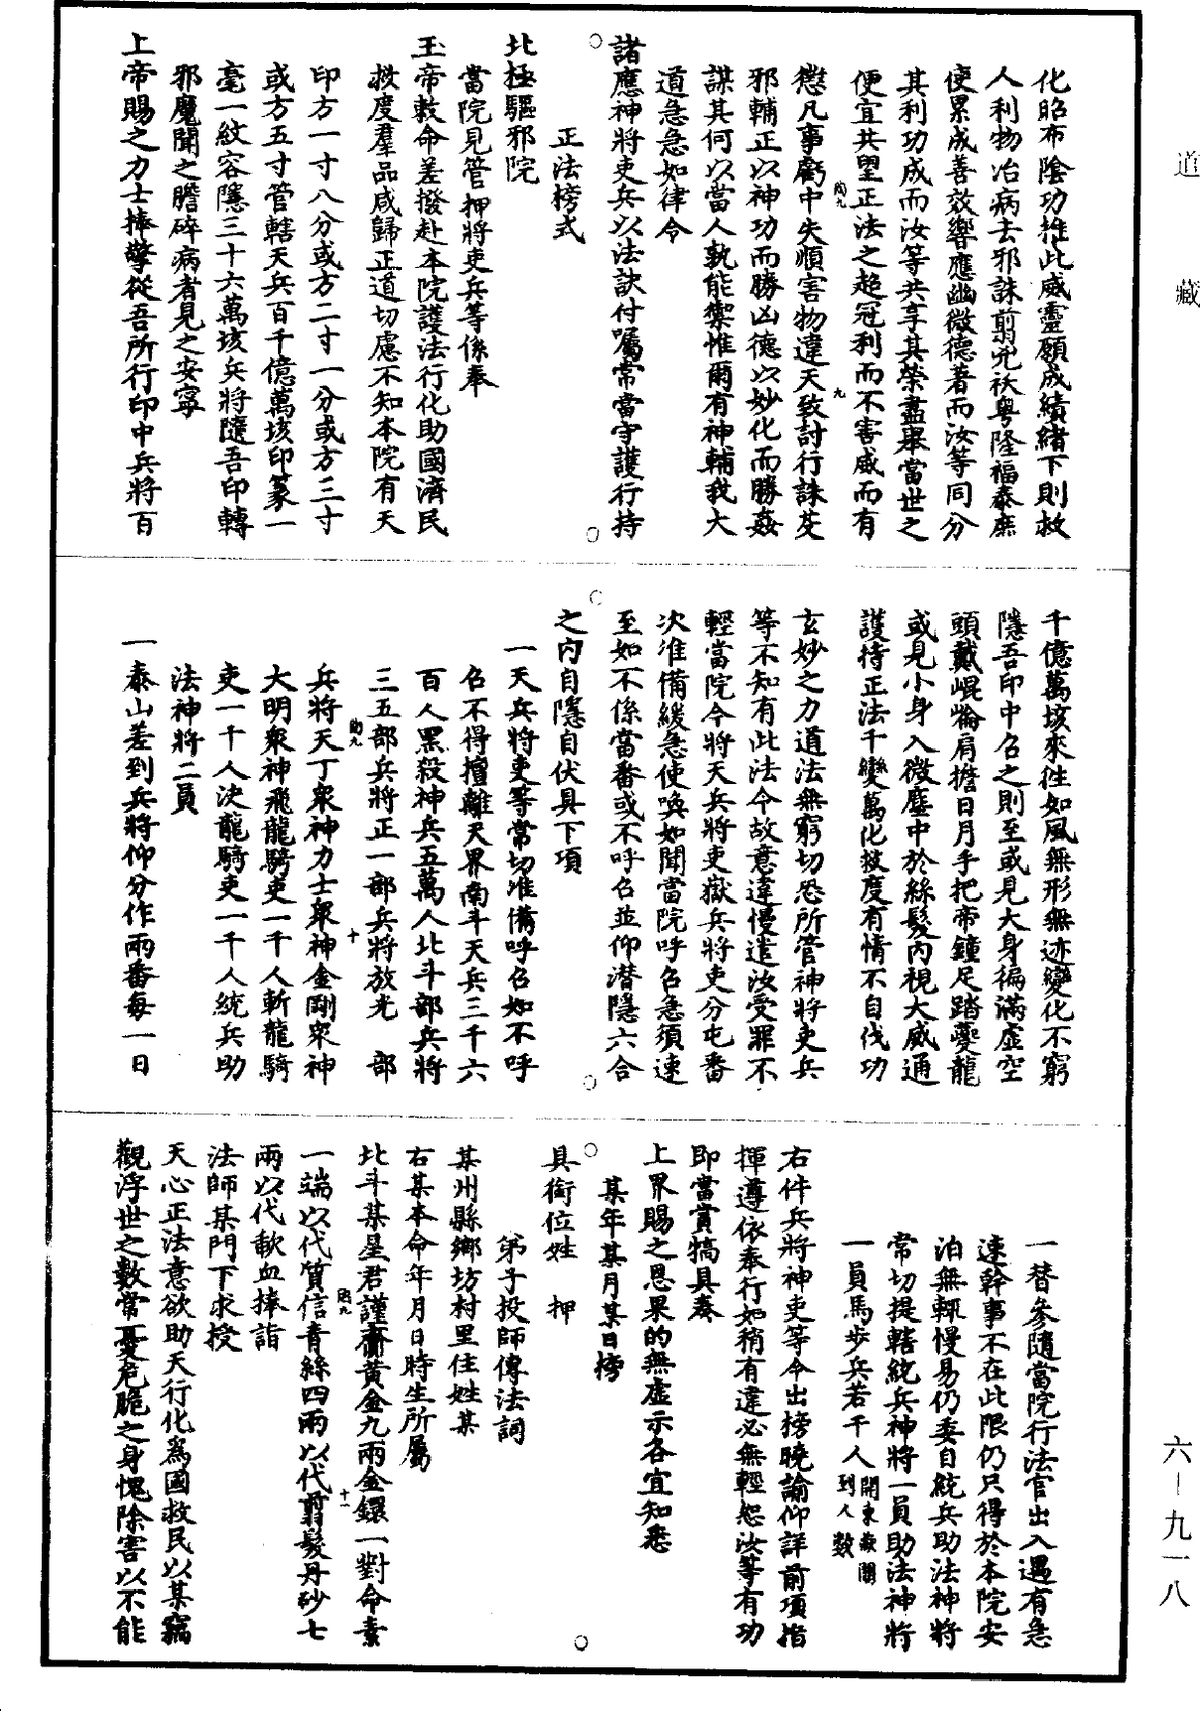 道藏
化昭布陰功推此威靈願成績緒下則救
人利物治病去邪誅翦兇祅粵隆福泰庶
使累成善效響應幽微德著而汝等同分
其利功成而汝等共享其榮盡舉當世之
便宜共盟正法之超冠利而不害威而有
陶九
九
懲凡事虧中失順害物違天致討行誅芟
邪輔正以神功而勝凶德以妙化而勝姦
謀其何以當人孰能禦惟爾有神輔我大
道急急如律令
諸應神將吏兵以法訣付囑常當守護行持
正法榜式
北極驅邪院
當院見管押將吏兵等係奉
玉帝敕命差撥赴本院護法行化助國濟民
救度羣品咸歸正道切慮不知本院有天
印方一寸八分或方二寸一分或方三寸
或方五寸管轄天兵百千億萬垓印篆一
毫一紋容隱三十六萬垓兵將隨吾印轉
邪魔聞之膽碎病者見之安寧
上帝賜之力士捧擎從吾所行印中兵將百
千億萬垓來往如風無形無迹變化不窮
隱吾印中召之則至或見大身徧滿虛空
頭戴崐崙肩擔日月手把帝鐘足踏夔龍
或見小身入微塵中於絲髮內視大威通
護持正法千變萬化救度有情不自伐功
玄妙之力道法無窮切恐所管神將吏兵
等不知有此法令故意違慢遣汝受罪不
輕當院今將天兵將吏嶽兵將吏分屯番
次准備緩急使喚如聞當院呼召急須速
至如不係當番或不呼召並仰潛隱六合
之內自隱自伏具下項
一天兵將吏等常切准備呼召如不呼
召不得擅離天界南斗天兵三千六
百人黑殺神兵五萬人北斗部兵將
三五部兵將正一部兵將放光 部
陶九
十
兵將天丁衆神力士衆神金剛衆神
大明衆神飛龍騎吏一千人斬龍騎
吏一千人決龍騎吏一千人統兵助
法神將二員
一泰山差到兵將仰分作兩番每一日
一替參隨當院行法官出入遇有急
速幹事不在此限仍只得於本院安
泊無輒慢易仍委自統兵助法神將
常切提轄統兵神將一員助法神將
一員馬步兵若干人開東嶽關到人數
右件兵將神吏等今出榜曉諭仰詳前項指
揮遵依奉行如稍有違必無輕恕汝等有功
即當賞犒具奏
上界賜之恩果的無虛示各宜知悉
某年某月某日榜
具銜位姓 押
弟子投師傳法詞
某州縣鄉坊村里住姓某
右某本命年月日時生所屬
北斗某星君謹齎黃金九兩金鐶一對命素
陶九
十一
一端以代質信青絲四兩以代翦髮丹砂七
兩以代歃血捧詣
法師某門下求授
天心正法意欲助天行化爲國救民以某竊
觀浮世之數常憂危脆之身愧除害以不能
六－九一八